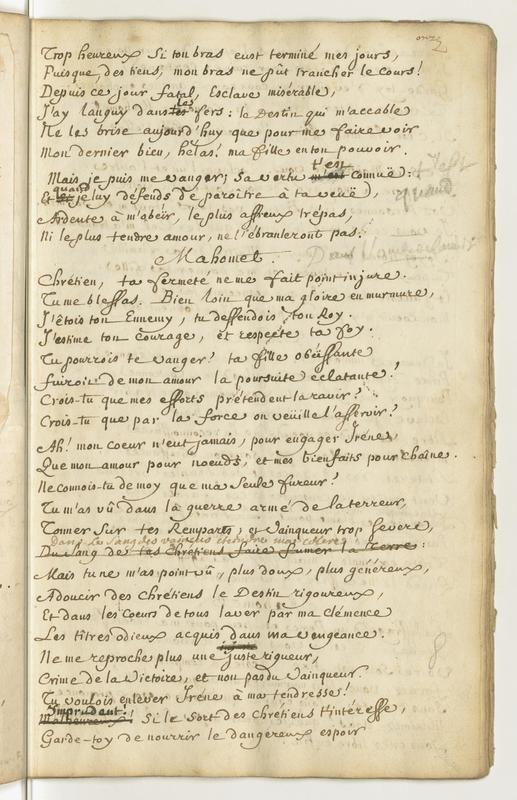 Trop heureux si ton bras eust terminé mes jours,
Puisque, des tiens, mon bras ne pût trancher le cours!
Depuis ce jour fatal, Esclave misérable,
J'ay languy dans les fers: le Destin qui m'accable
Ne les brise aujourd'huy que pour me faire voir
Mon dernier bien, hélas! ma fille en ton pouvoir.
Mais je puis me vanger; sa vertu t'est connuë:
Et quand je luy défends de paroître à ta veuë,
Ardente à m'obéïr, le plus affreux trépas,
Ni le plus tendre amour, ne l'ébranleront pas.
Mahomet.
Chrétien, ta fermeté ne me fait point injure.
Tu me blessas. Bien loin que ma gloire en murmure,
J'êtois ton Ennemy, tu deffendois ton Roy.
J'estime ton courage, et respecte ta foy.
Tu pourrois te vanger? ta fille obéïssante
fuiroit de mon amour la poursuite éclatante?
Crois-tu que mes efforts prétendent la ravir?
Crois-tu que par la force on veüille l'asservir?
Ah! mon coeur n'eut jamais, pour engager Iréne,
Que mon amour pour noeuds, et mes bienfaits pour chaîne.
Ne connois-tu de moy que ma seule fureur?
Tu m'as vû dans la guerre armé de la terreur,
Tonner sur tes Remparts; et Vainqueur trop severe,
dans le sang des vaincus éteindre ma colere
Du sang de tas Chrétiens faire fumer la Terre:
Mais tu ne m'as point vû, plus doux, plus généreux,
Adoucir des Chrétiens le Destin rigoureux,
Et dans les coeurs de tous laver par ma clémence
Les titres odieux acquis dans ma vengeance.
Ne me reproche plus une juste rigueur,
Crime de la Victoire, et non pas du Vainqueur.
Tu voulois enlever Iréne à ma tendresse!
Imprudent!
Malheureux! Si le sort des Chrétiens t'intéresse,
Garde-toy de nourrir le dangereux espoir